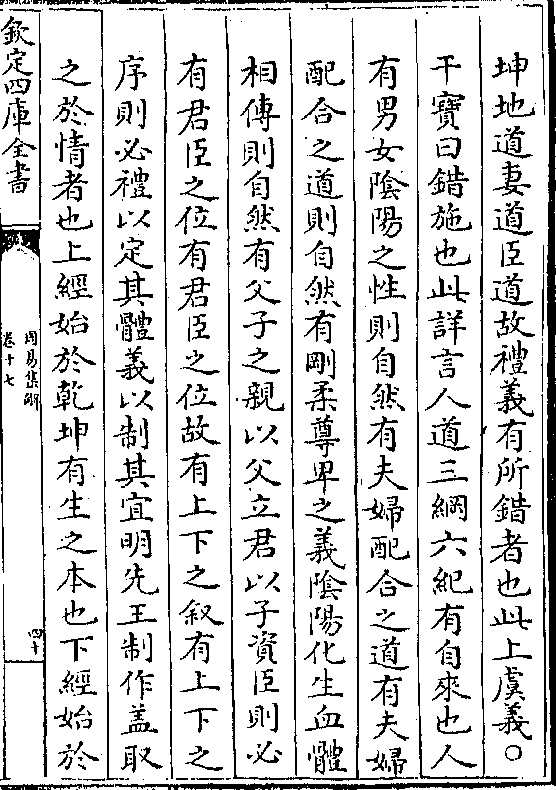 坤地道妻道臣道故禮義有所錯者也此上虞義○
干寶曰錯施也此詳言人道三綱六紀有自來也人
有男女陰陽之性則自然有夫婦配合之道有夫婦
配合之道則自然有剛柔尊卑之義陰陽化生血體
相傳則自然有父子之親以父立君以子資臣則必
有君臣之位有君臣之位故有上下之叙有上下之
序則必禮以定其體義以制其宜明先王制作盖取
之於情者也上經始於乾坤有生之本也下經始於
欽定四庫全書
周易集解
卷十七
四十